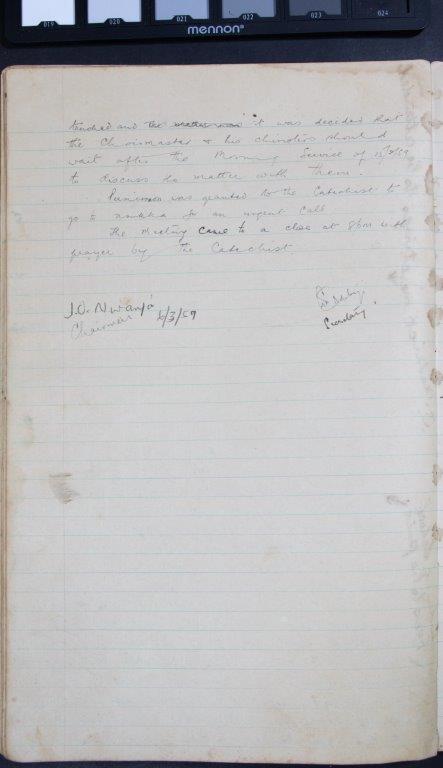 019 020 021 022 023 024
mennon
touched and the matter was it was decided that
the Choirmaster & his choristers should
wait after the Morning Service of 15/3/59
to discuss the matter with them.
Permission was granted to the Catechist to
go to for an urgent call
The meeting came to a close at 8pm with
prayer by the Catechist
J.O. Nwanjo
Chairman /3/59
Secretary.